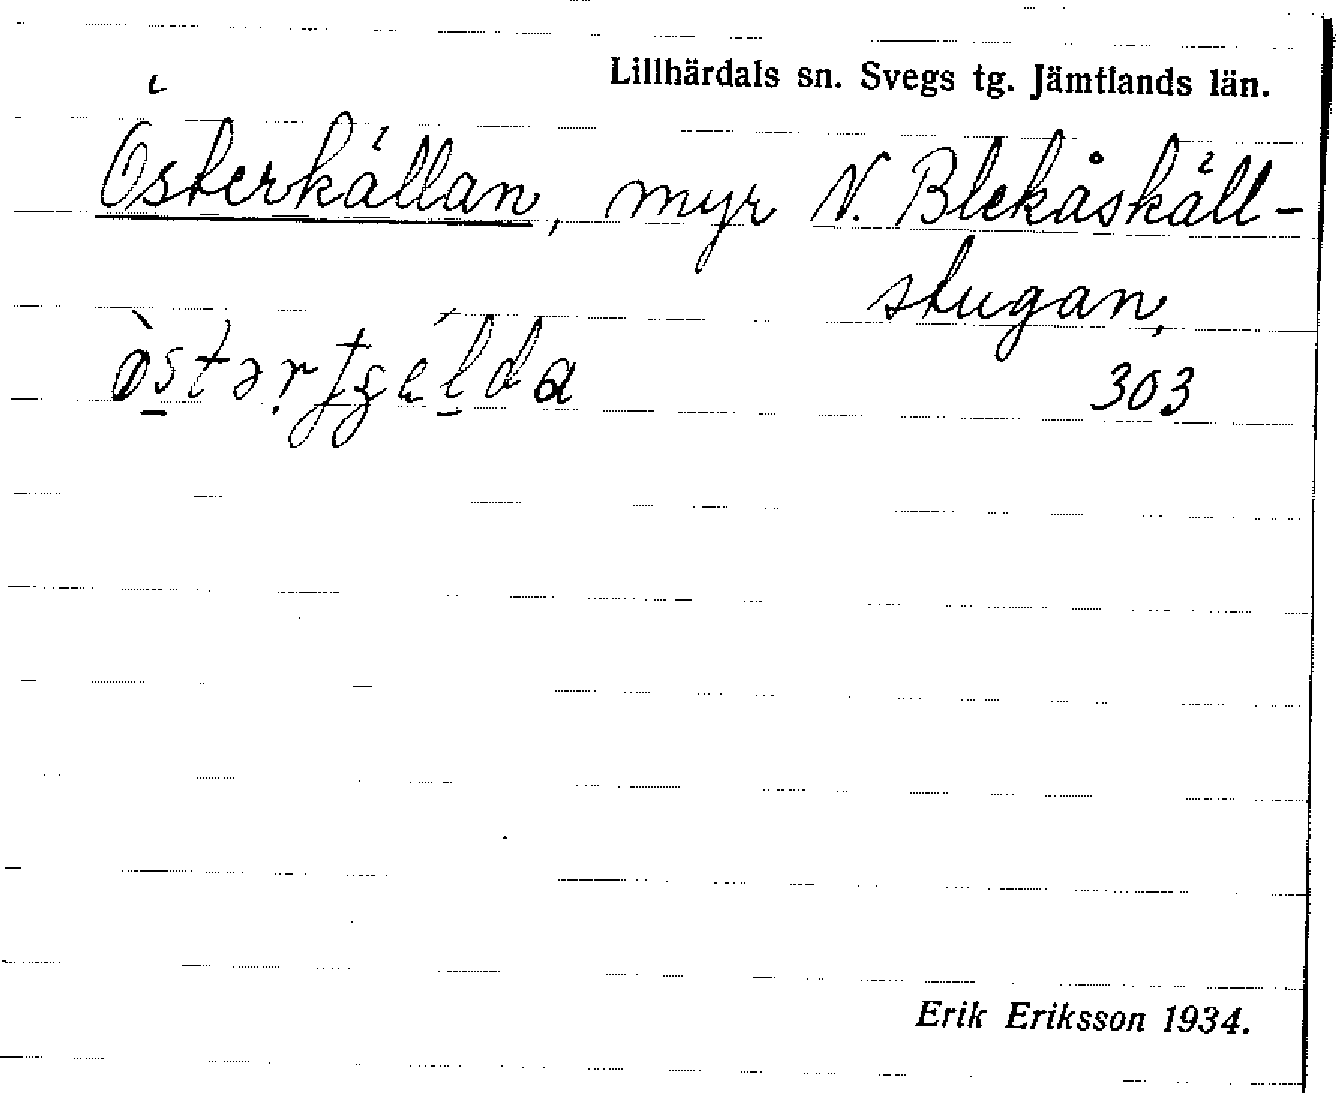 Lillhärdals sn. Svegs tg. Jämtlands län.
Österkällan, myr N. Blekåskäll-
stugan,
303
Erik Eriksson 1934.